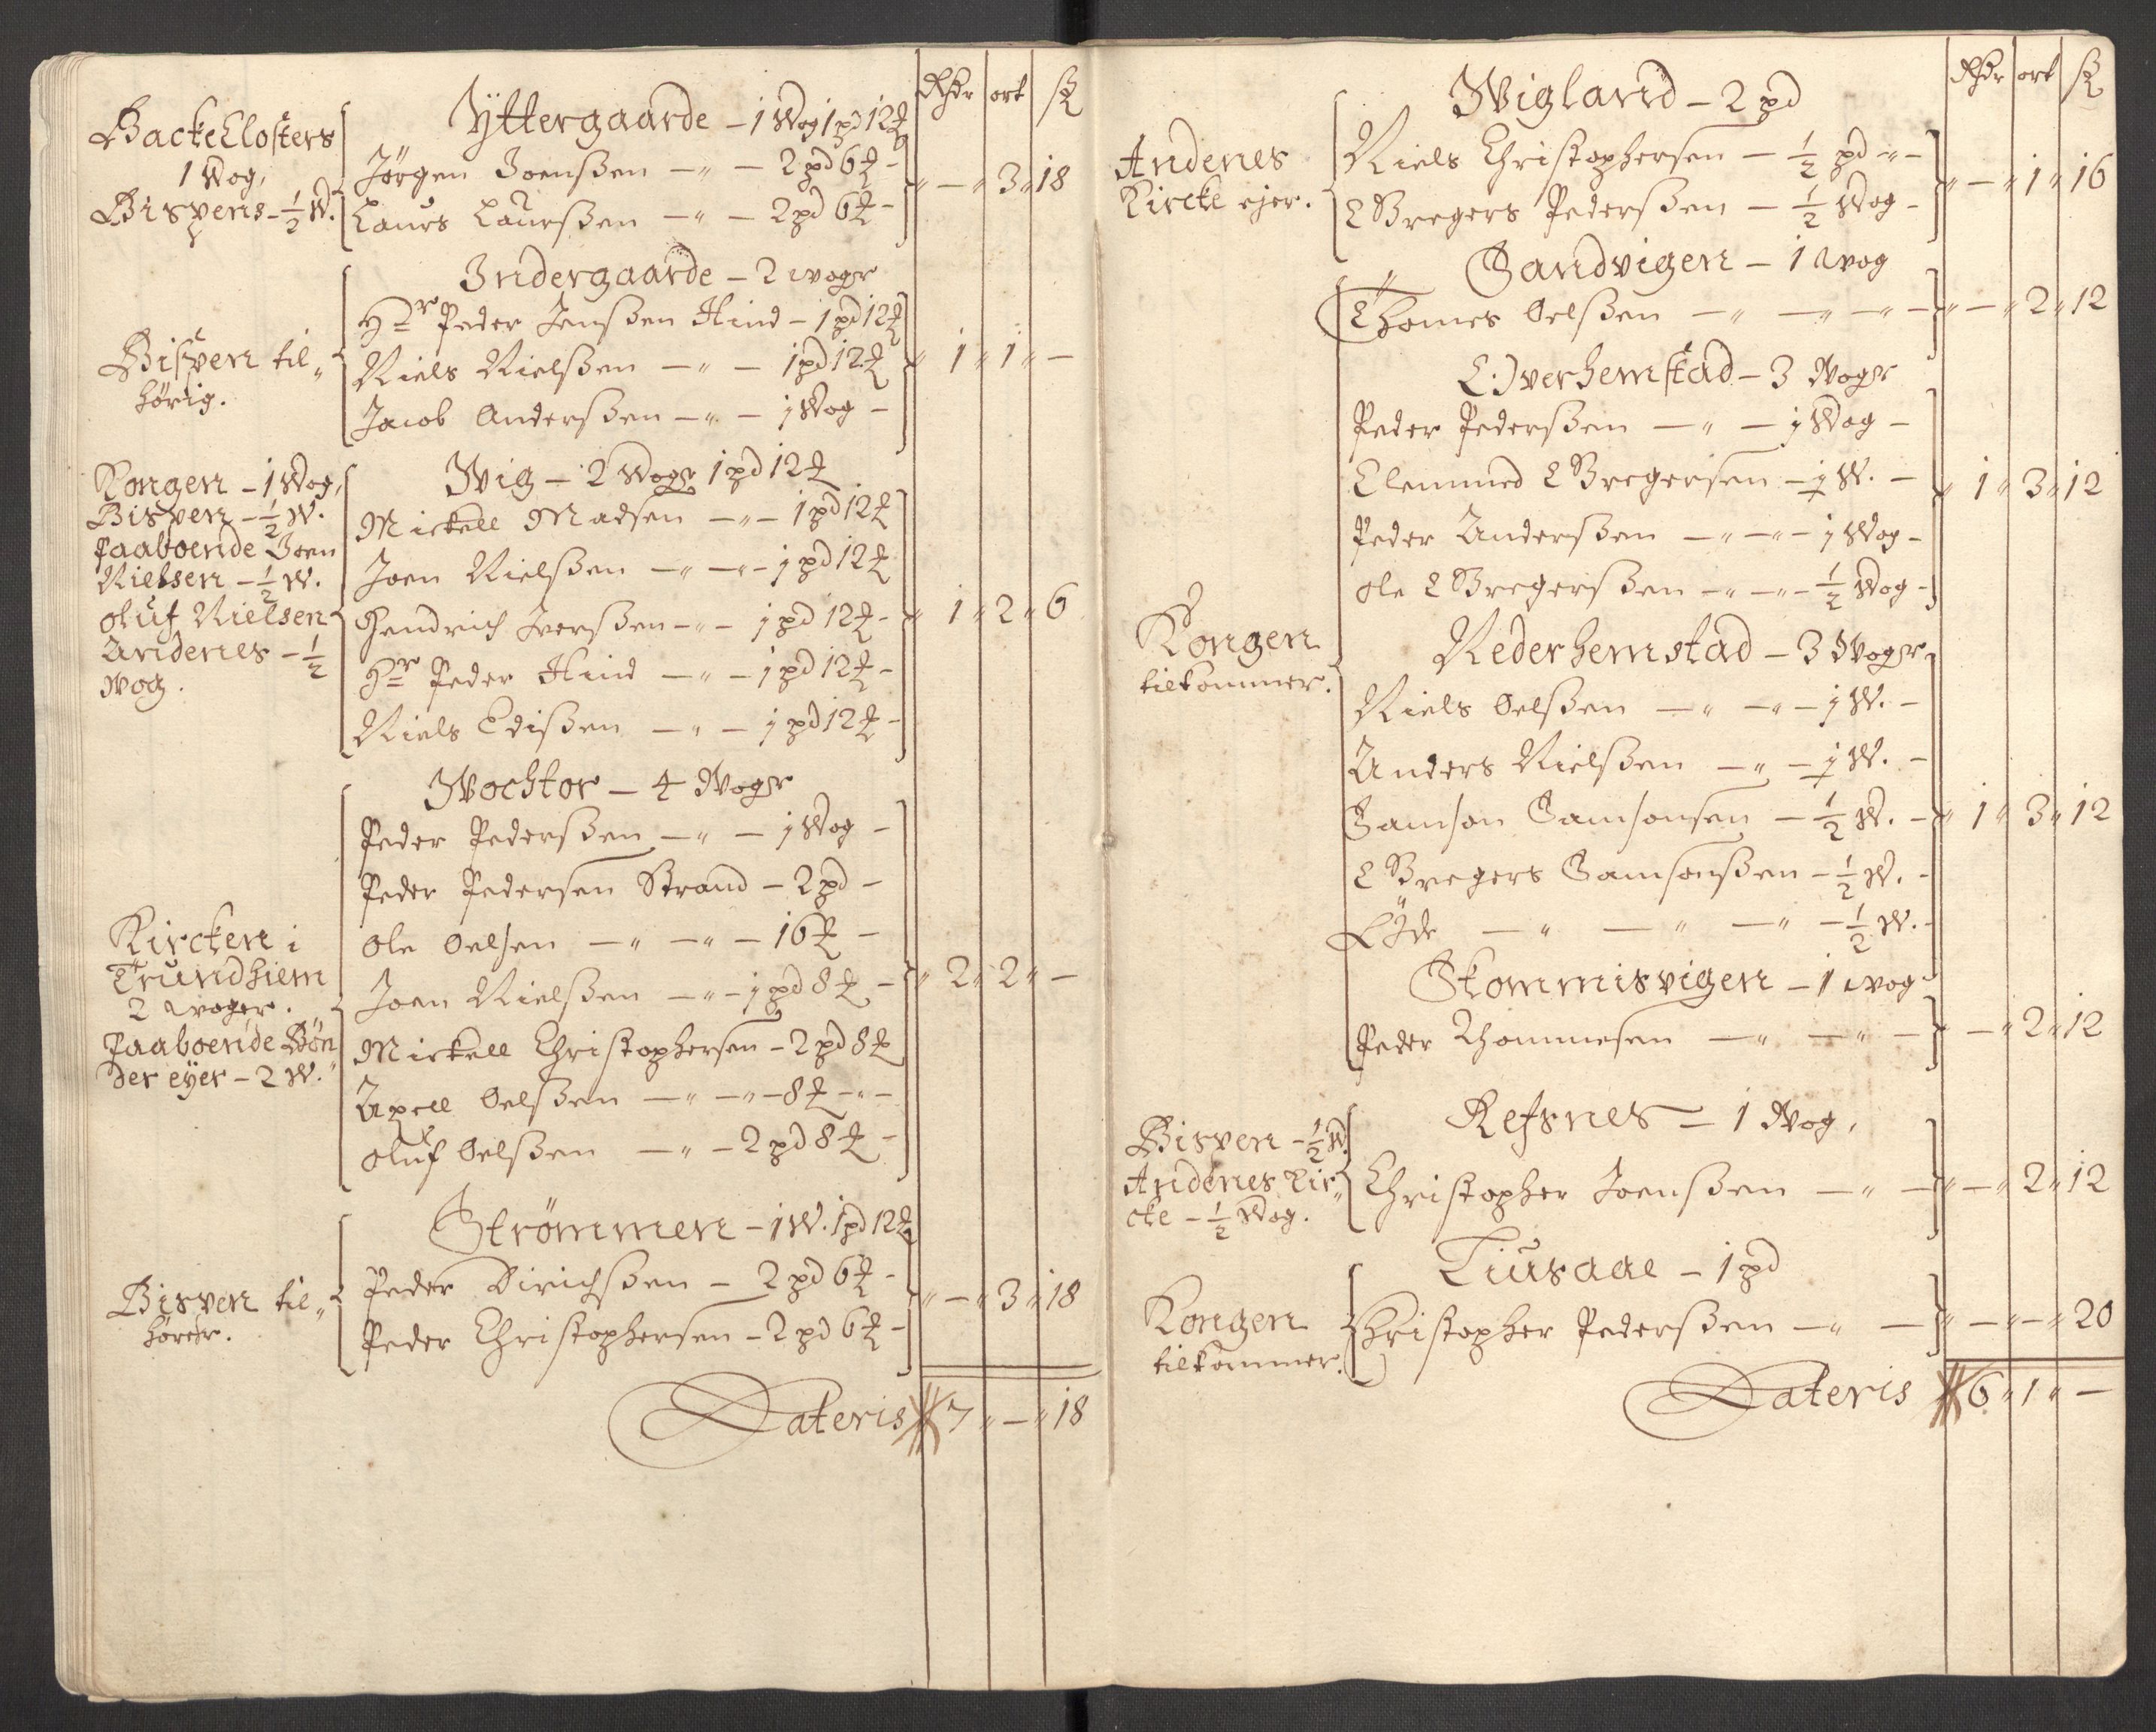 Rhdr ort ß
BackeClosters
1 Wog,
Bispens - ½ W.
Yttergaarde - 1 Wog 1 pd 12 ℔
Jørgen Joenßen - " - 2 pd 6 ℔ -
Laurs Laurßen - " - 2 pd 6 ℔ - " - " 3 " 18
Bispen til„
hørig.
Indergaarde - 2 woger
Hr Peder Jenßen Hind - 1 pd 12 ℔
Niels Nielßen - " - 1 pd 12 ℔ " 1 " 1 " -
Jacob Anderßen - " - 1 Wog -
Kongen - 1 Wog,
Bispen - ½ W.
Paaboende Joen
Nielsen - ½ W.
oluf Nielsen
Andenes - ½
wog.
Wig - 2 Woger 1 pd 12 ℔
Mickell Madsen - " - 1 pd 12 ℔
Joen Nielßen - " - " - 1 pd 12 ℔
Hendrich Iverßen - " - 1 pd 12 ℔ - " 1 " 2 " 6
Hr Peder Hind - " - 1 pd 12 ℔ -
Niels Edißen - " - 1 pd 12 ℔ -
Kircken i
Trundhiem
2 woger.
Paaboende Bøn„
der eyer - 2 W.
Wochtor - 4 Woger
Peder Pederßen - " - 1 Wog -
Peder Pedersen Strand - 2 pd -
ole Oelsen - " - " - 16 ℔ -
Joen Nielßen - " - 1 pd 8 ℔ - " 2 " 2 " -
Mickell Christophersen - 2 pd 8 ℔
Axell Oelßen - " - " - 8 ℔ - " -
oluf Oelßen - " - 2 pd 8 ℔ -
Bispen til„
hører.
Strømmen - 1 W. 1 pd 12 ℔
Peder Dirichßen - 2 pd 6 ℔ -
Peder Christophersen - 2 pd 6 ℔ - " - " 3 " 18
Lateris 7 " - " 18
Rhdr ort ß
Andenes
Kircke ejer.
Wigland - 2 pd
Niels Christophersen - ½ pd " -
Gregers Pederßen - ½ Wog - " - " 1 " 16
Sandvigen - 1 wog
Thomes Oelßen - " - " - " - " - " 2 " 12
Kongen
tilkommer.
Overhemstad - 3 Woger
Peder Pederßen - " - 1 Wog -
Clemmed Gregersen - 1 W. - " 1 " 3 " 12
Peder Anderßen - " - " - 1 Wog -
ole Gregerßen - " - " - ½ Wog -
Nederhemstad - 3 Woger
Niels Oelßen - " - " - 1 W. -
Anders Nielßen - " - 1 W. -
Samson Samsonsen - ½ W. - " 1 " 3 " 12
Gregers Samsonßen - ½ W. -
Øde - " - " - " - ½ W. -
Skommisvigen - 1 wog
Peder Thommesen - " - " - " - " 2 " 12
Bispen - ½ W.
Andenes Kir„
cke - ½ Wog.
Refsnes - 1 Wog,
Christopher Joenßen - " - " - " 2 " 12
Kongen
tilkommer.
Tiusaae - 1 pd
Christopher Pederßen - " - " - " - " 20
Lateris 6 " 1 " -